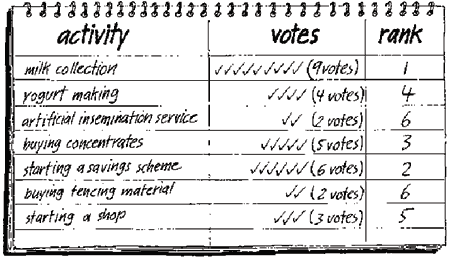 activity votes rank
milk collection ✓✓✓✓✓✓✓✓✓ (9 votes) 1
yogurt making ✓✓✓✓ (4 votes) 4
artificial insemination service ✓✓ (2 votes) 6
buying concentrates ✓✓✓✓✓ (5 votes) 3
starting a savings scheme ✓✓✓✓✓✓ (6 votes) 2
buying fencing material ✓✓ (2 votes) 6
starting a shop ✓✓✓ (3 votes) 5